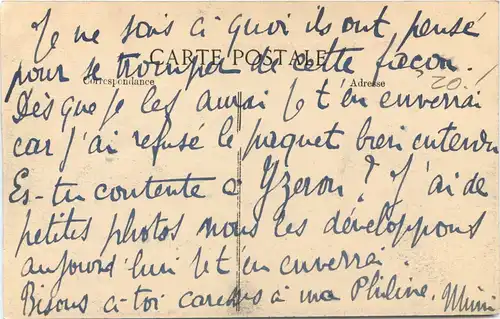 Je ne sais ci quoi ils ont pensé
CARTE POSTALE
pour se tromper de cette façon.
Correspondance Adresse
20.
Dès que je les aurai je t'en enverrai
car j'ai refusé le paquet bien entendu
Es-tu contente à Yzeron? J'ai de
petites photos nous les développons
aujourd'hui je t'en enverrai.
Bisous à toi caresses à ma Philine. Mimi